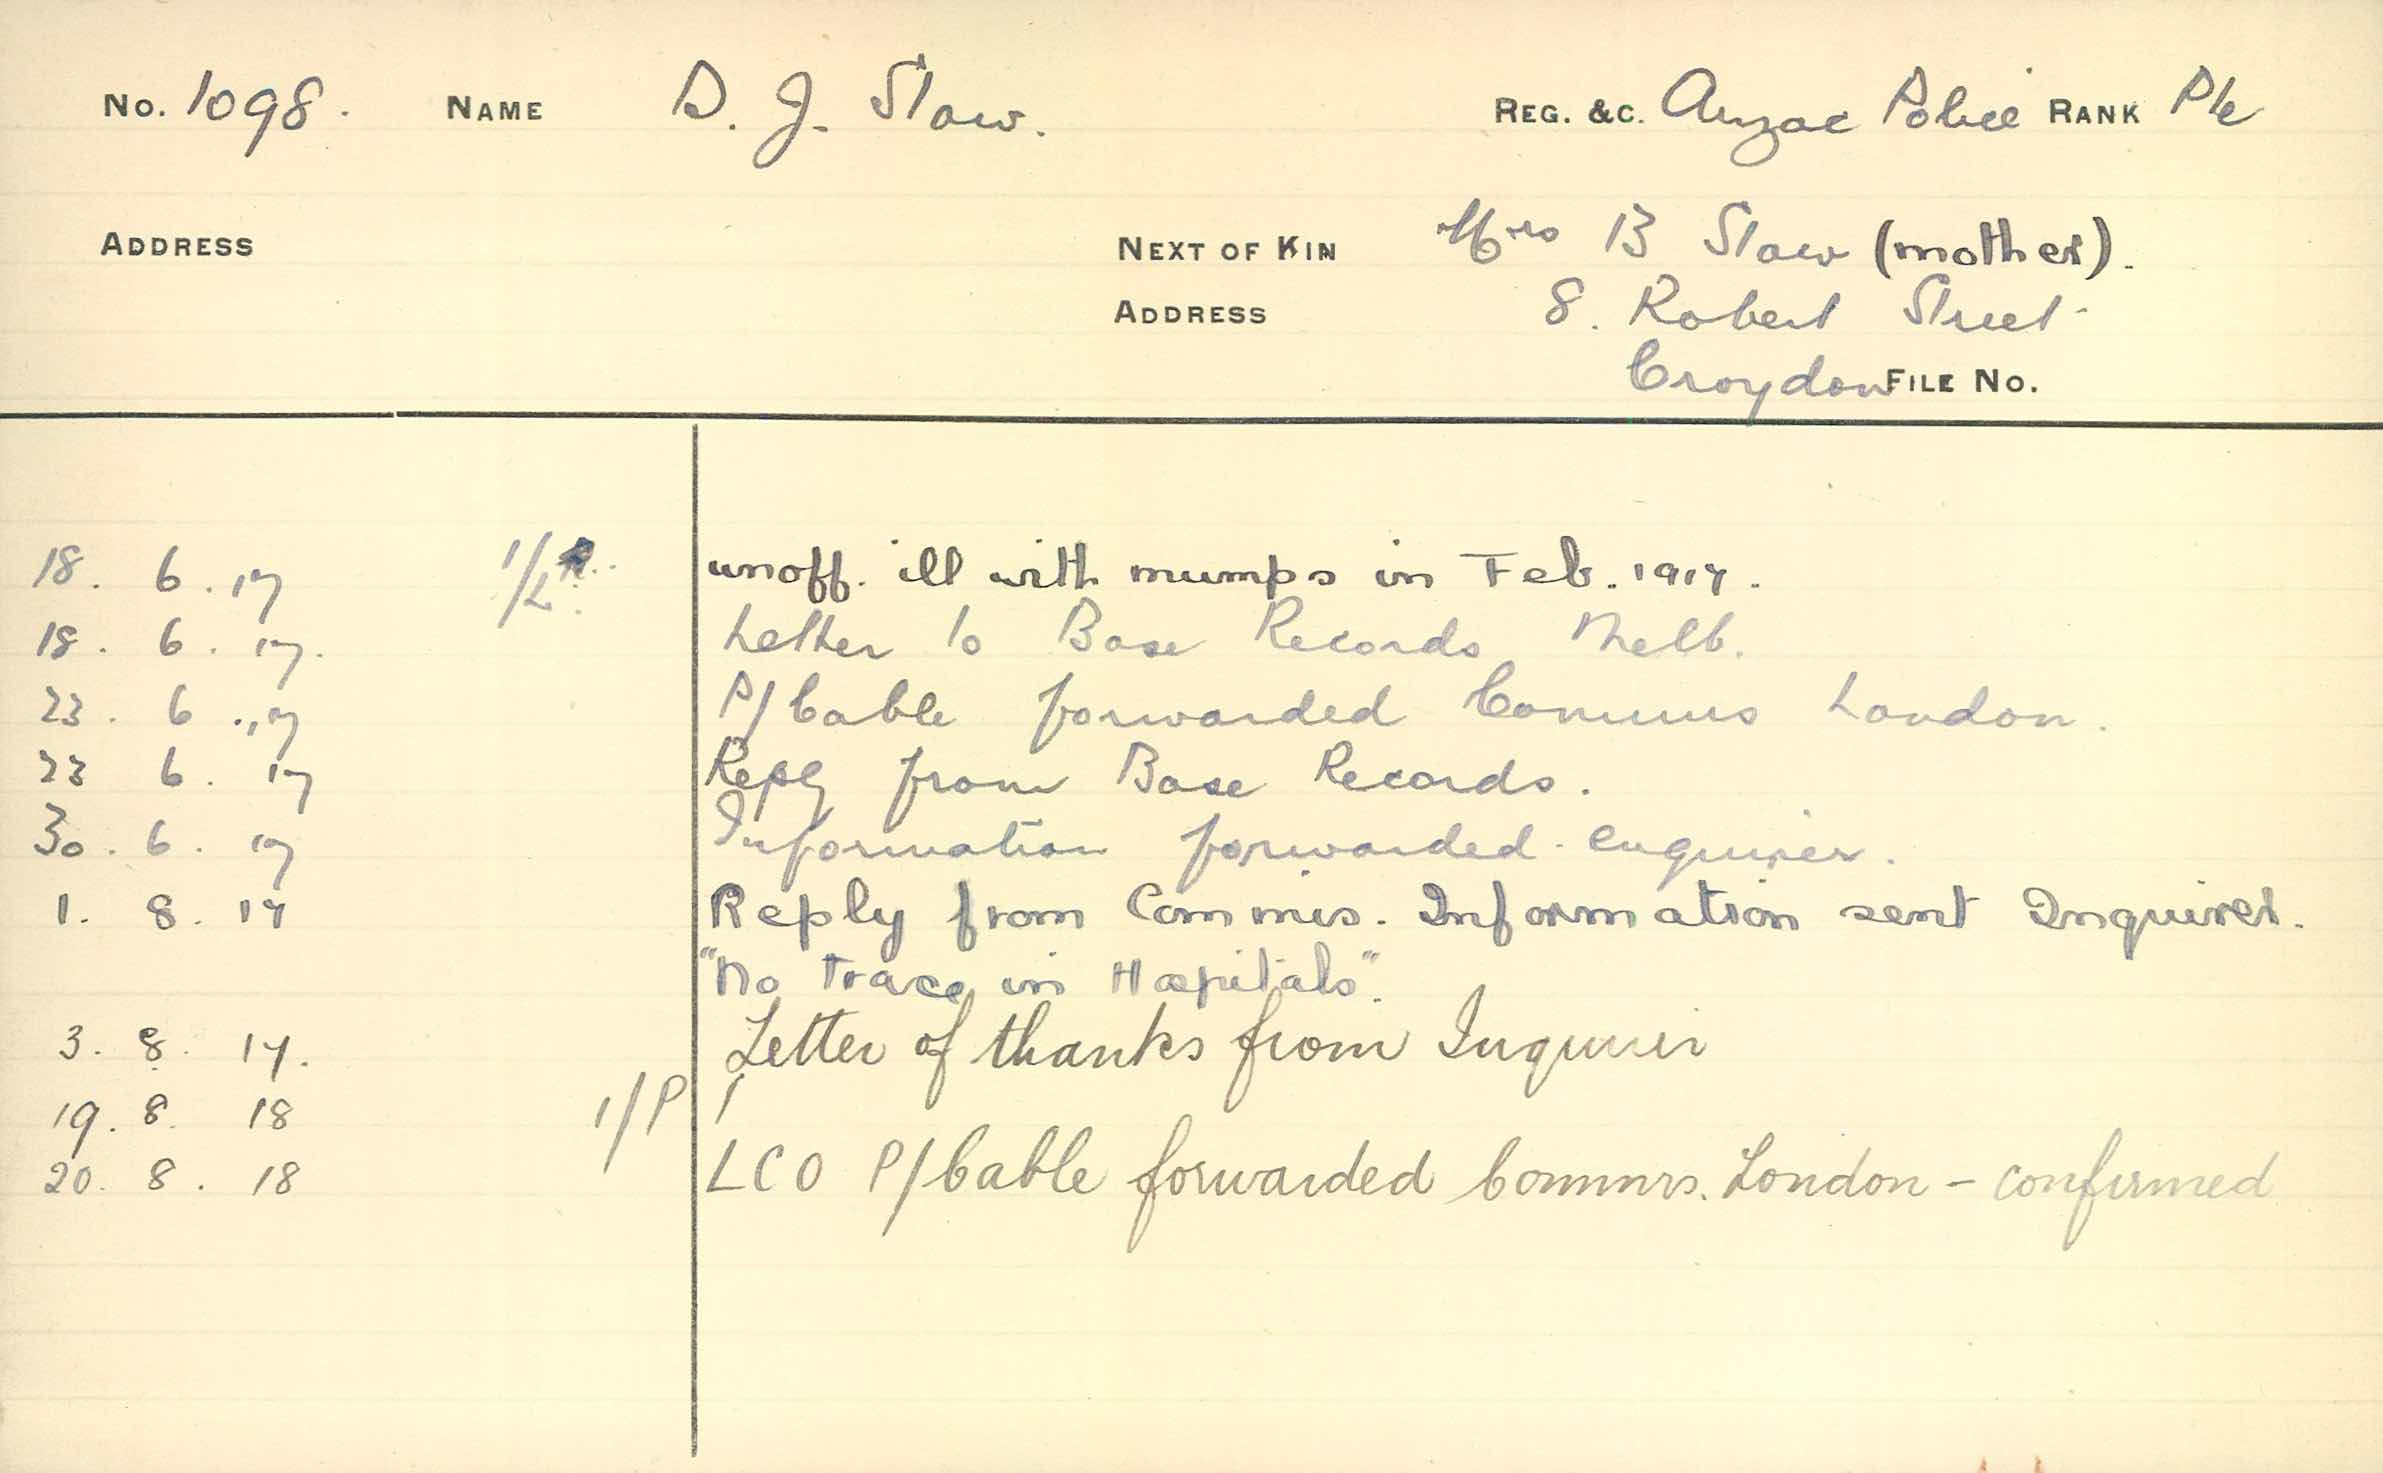 No. 1098. NAME D. J. Slaw. REG. &C. Anzac Police RANK Pte
ADDRESS NEXT OF KIN Mrs B Slaw (mother).
ADDRESS 8. Robert Street
Croydon FILE No.
18. 6. 17 1/L unoff. ill with mumps in Feb. 1917.
18. 6. 17. Letter to Base Records Melb.
23. 6. 17 P/Cable forwarded Commrs London.
23 6. 17 Reply from Base Records.
30. 6. 17 Information forwarded enquirer.
1. 8. 17 Reply from Commis. Information sent Inquirer.
"No trace in Hospitals".
3. 8. 17. Letter of thanks from Inquirer
19. 8. 18 1/P
20. 8. 18 LCO P/Cable forwarded Commrs. London - confirmed